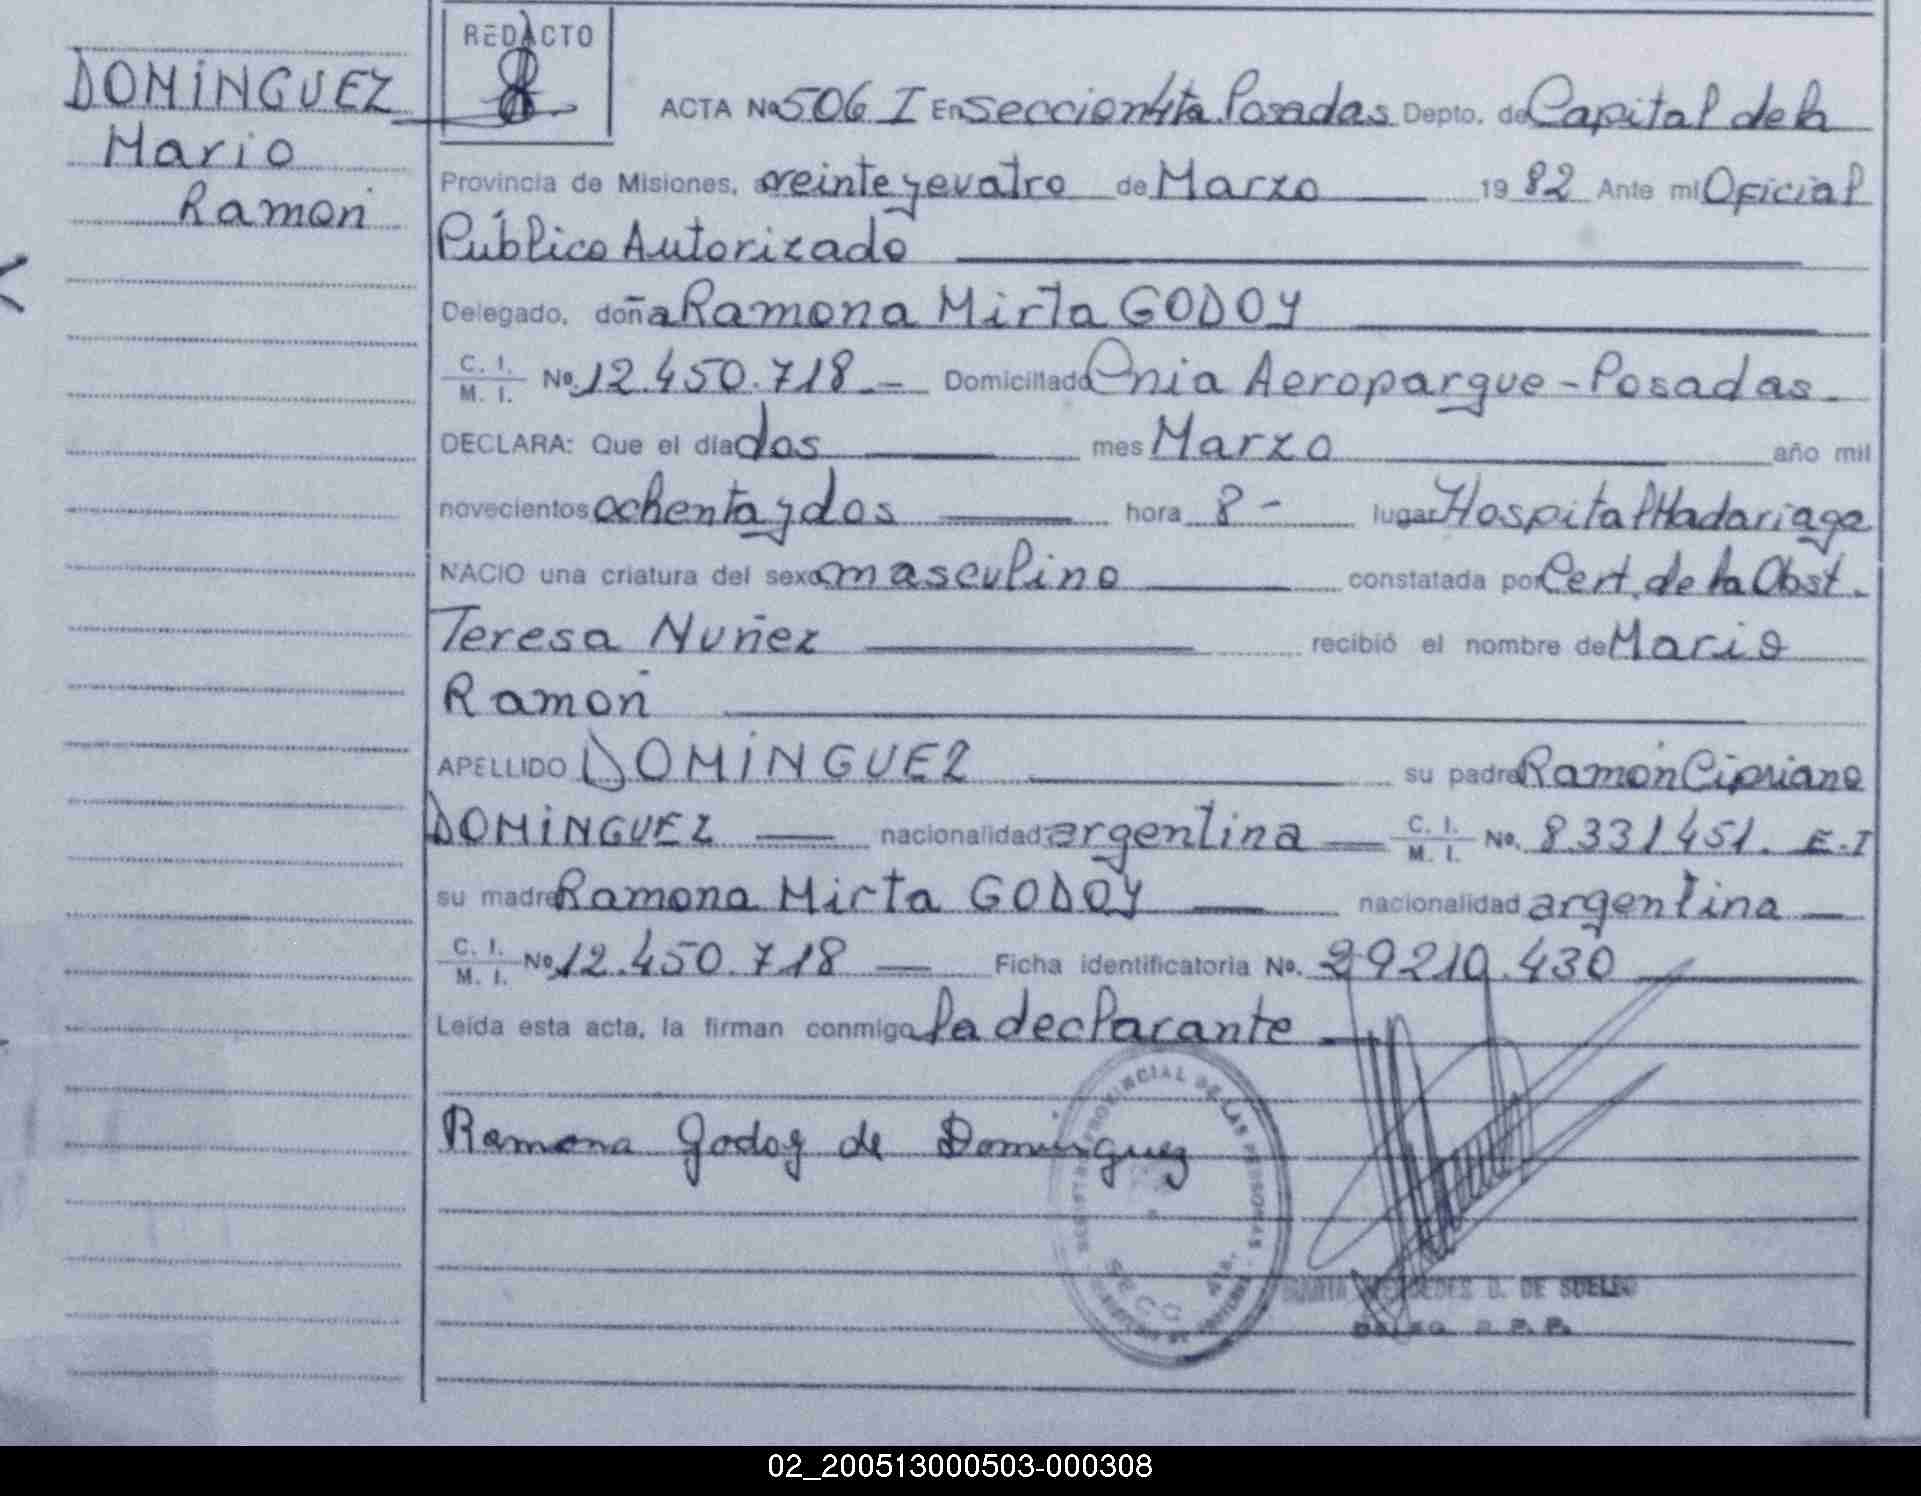 DOMÍNGUEZ
Mario
Ramón
REDACTO
ACTA Nº 506 I En Seccion 4ta. Posadas Depto. de Capital de la
Provincia de Misiones, a veinteycuatro de Marzo 19 82 Ante mi Oficial
Público Autorizado
Delegado, doña Ramona Mirta GODOY
C. I.
M. I. Nº. 12.450.718 - Domiciliado Cnia Aeroparque - Posadas.
DECLARA: Que el día dos mes Marzo año mil
novecientos ochenta y dos hora 8 - lugar Hospital Madariaga
NACIO una criatura del sexo masculino constatada por Cert. de la Obst.
Teresa Nuñez recibió el nombre de Mario
Ramón
APELLIDO DOMÍNGUEZ su padre Ramón Cipriano
DOMÍNGUEZ nacionalidad argentina C. I.
M. I. Nº. 8.331451. E.I
su madre Ramona Mirta GODOY nacionalidad argentina
C. I.
M. I. Nº 12.450.718 Ficha identificatoria Nº. 29210.430
Leída esta acta, la firman conmigo la declarante
Ramona Godoy de Dominguez
PROVINCIAL DE LAS PERSONAS
SECC 4ta.
MERCEDES D. DE SUELDO
02_200513000503-000308